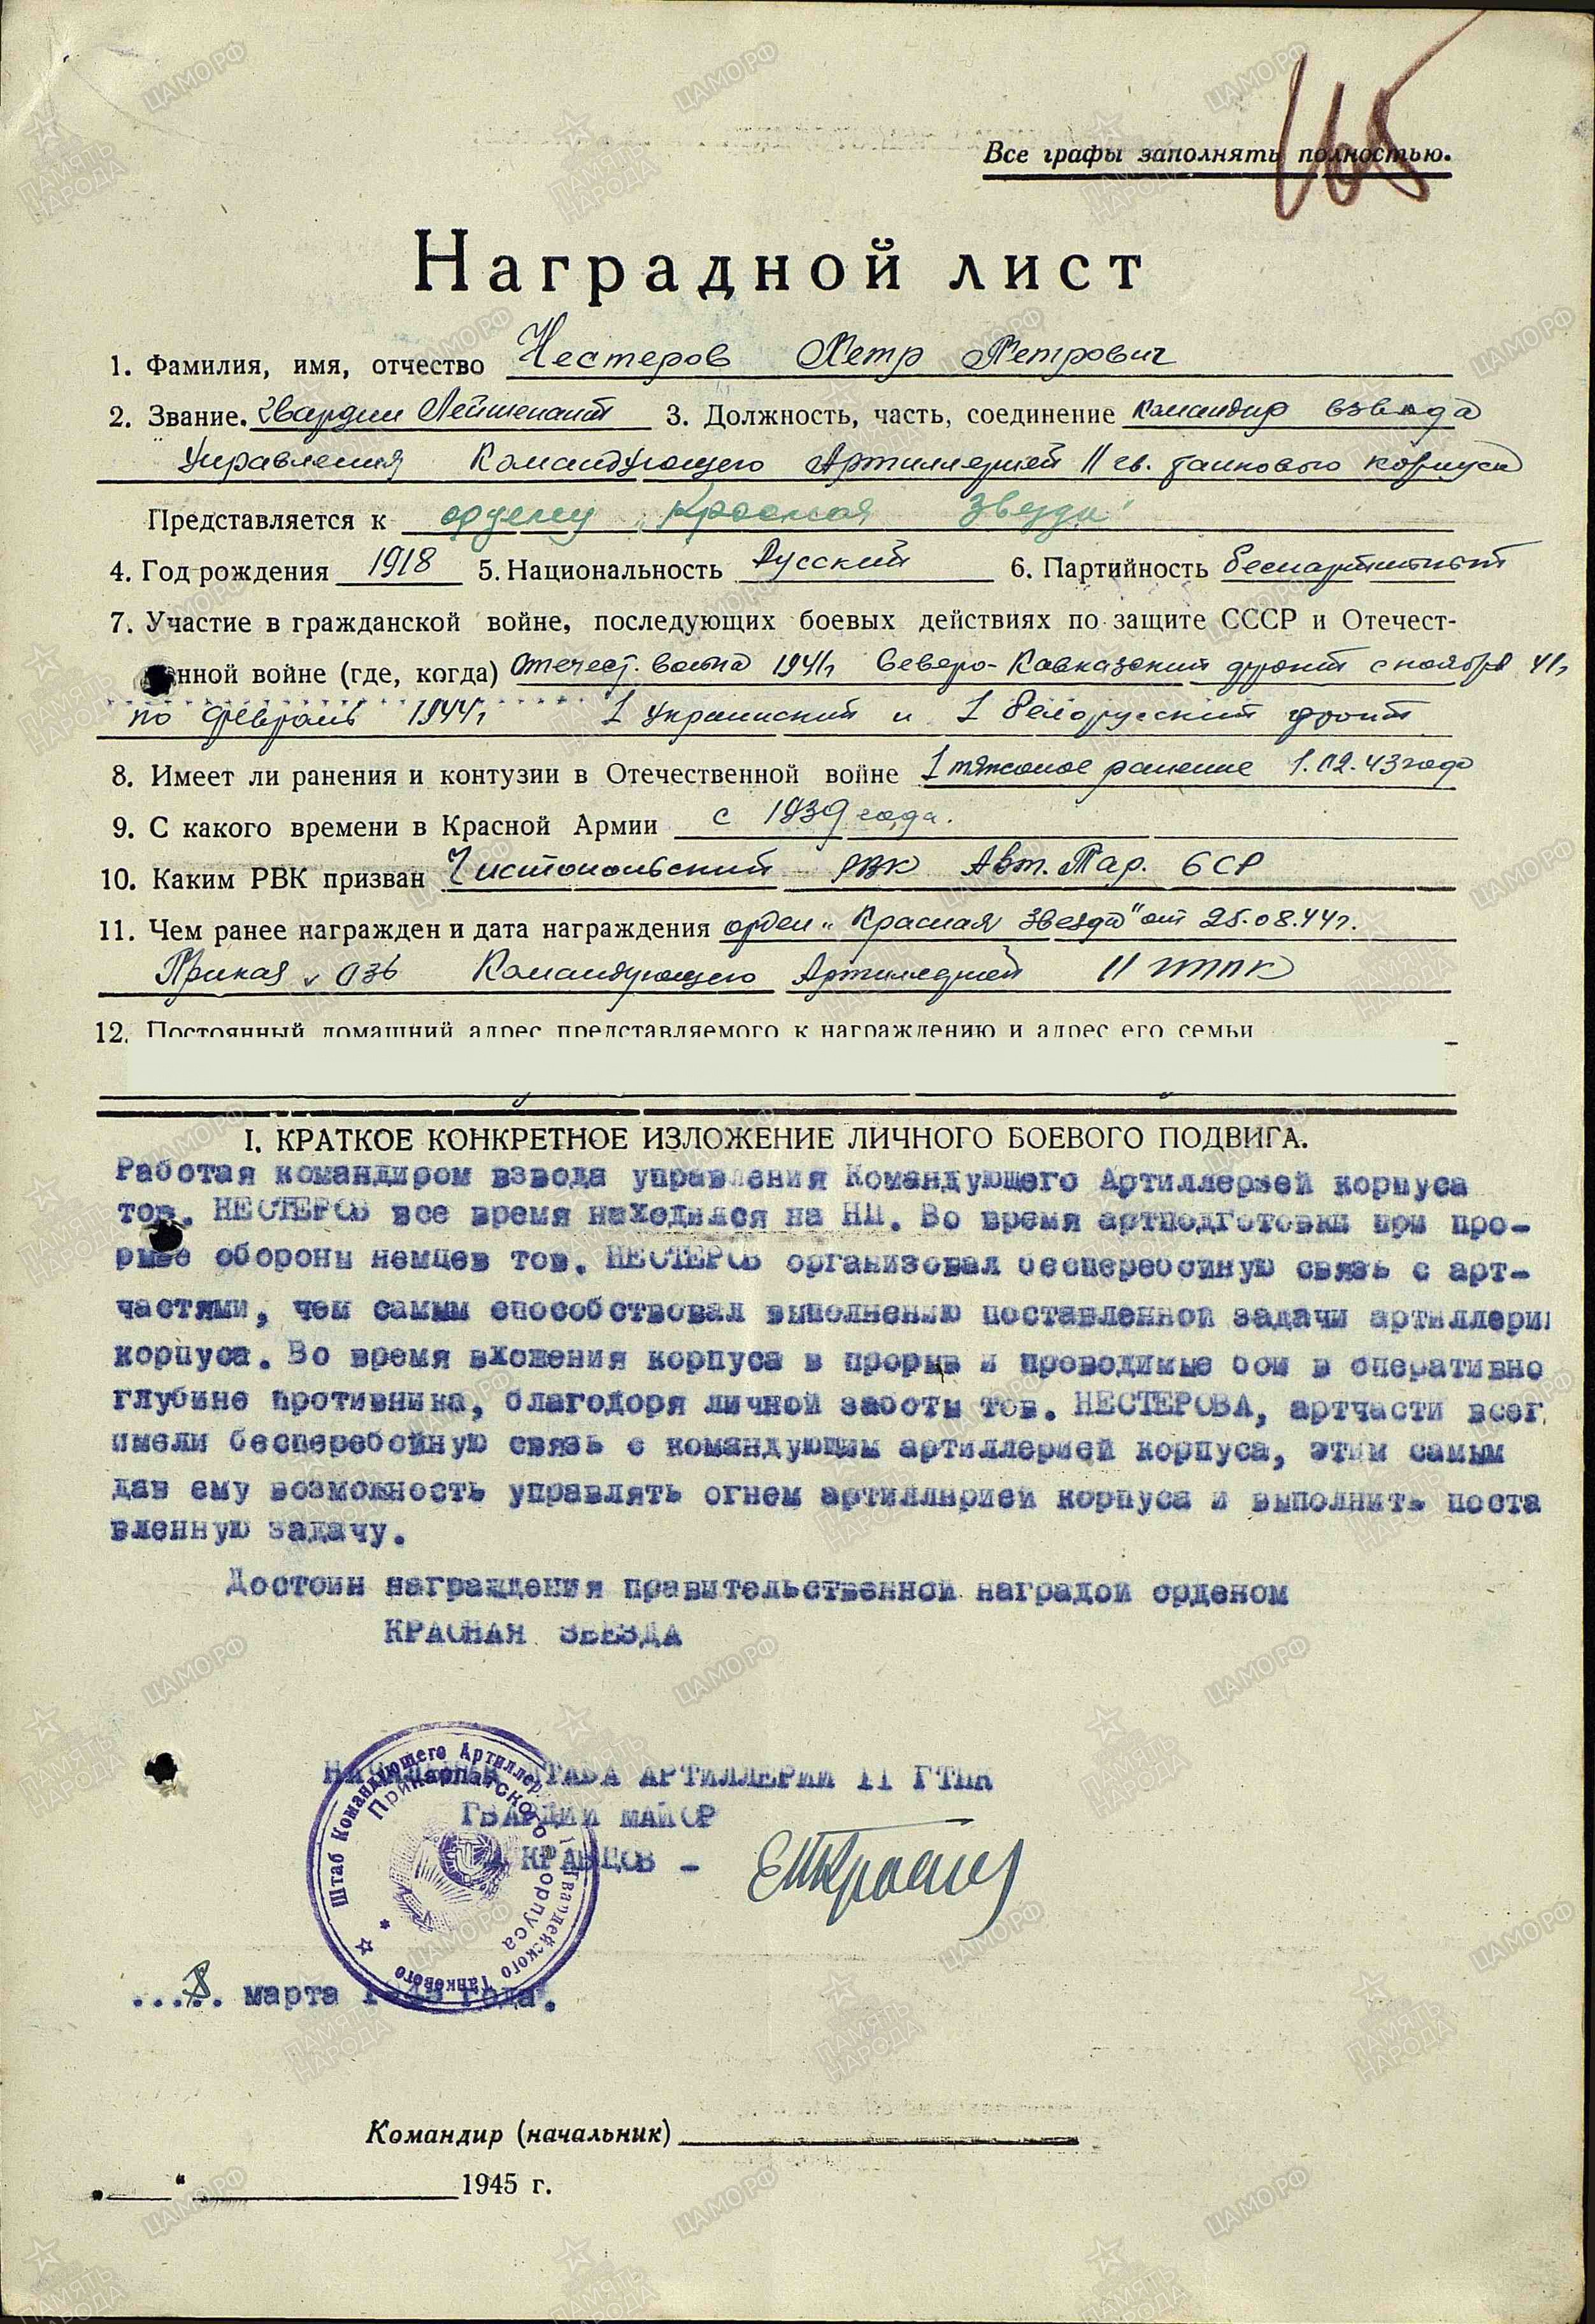 165
Все графы заполнять полностью.
Наградной лист
1. Фамилия, имя, отчество Нестеров Петр Петрович
2. Звание. Гвардии Лейтенант 3. Должность, часть, соединение командир взвода
Управления Командующего Артиллерией 11 гв. танкового корпуса
Представляется к ордену „Красная Звезда"
4. Год рождения 1918 5. Национальность Русский 6. Партийность беспартийный
7. Участие в гражданской войне, последующих боевых действиях по защите СССР и Отечест-
нной войне (где, когда) Отечест. война 1941г Северо-Кавказский фронт с ноября 41г
по февраль 1944г 1 Украинский и 1 Белорусский фронт
8. Имеет ли ранения и контузии в Отечественной войне 1 тяжолое ранение 1.02.43 года
9. С какого времени в Красной Армии с 1939 года.
10. Каким РВК призван Чистопольский РВК Авт. Тар. ССР
11. Чем ранее награжден и дата награждения орден „Красная Звезда" от 25.08.44г.
Приказ № 036 Командующего Артиллерией 11 ГТПК
12. Постоянный домашний адрес представляемого к награждению и адрес его семьи
I. КРАТКОЕ КОНКРЕТНОЕ ИЗЛОЖЕНИЕ ЛИЧНОГО БОЕВОГО ПОДВИГА.
Работая командиром взвода управления Командующего Артиллерией корпуса
тов. НЕСТЕРОВ все время находился на НП. Во время артподготовки при про-
рыве обороны немцев тов. НЕСТЕРОВ организовал бесперебойную связь с арт-
частями, чем самым способствовал выполнению поставленной задачи артиллерии
корпуса. Во время вхожения корпуса в прорыв и проводимые бои в оперативно
глубине противника, благодоря личной заботы тов. НЕСТЕРОВА, артчасти всег
имели бесперебойную связь с командующим артиллерией корпуса, этим самым
дав ему возможность управлять огнем артиллярией корпуса и выполнить поста
вленную задачу.
Достоин награждения правительственной наградой орденом
КРАСНАЯ ЗВЕЗДА
НАЧАЛЬНИК ШТАБА АРТИЛЛЕРИИ 11 ГТПК
ГВАРДИИ МАЙОР
КРАВЦОВ -
Штаб Командующего Артиллерией 11 Гвардейского Танкового
Прикарпатского корпуса
...8. марта 1945 года.
Командир (начальник)
„ " 1945 г.
ПАМЯТЬ НАРОДА
ЦАМО.РФ